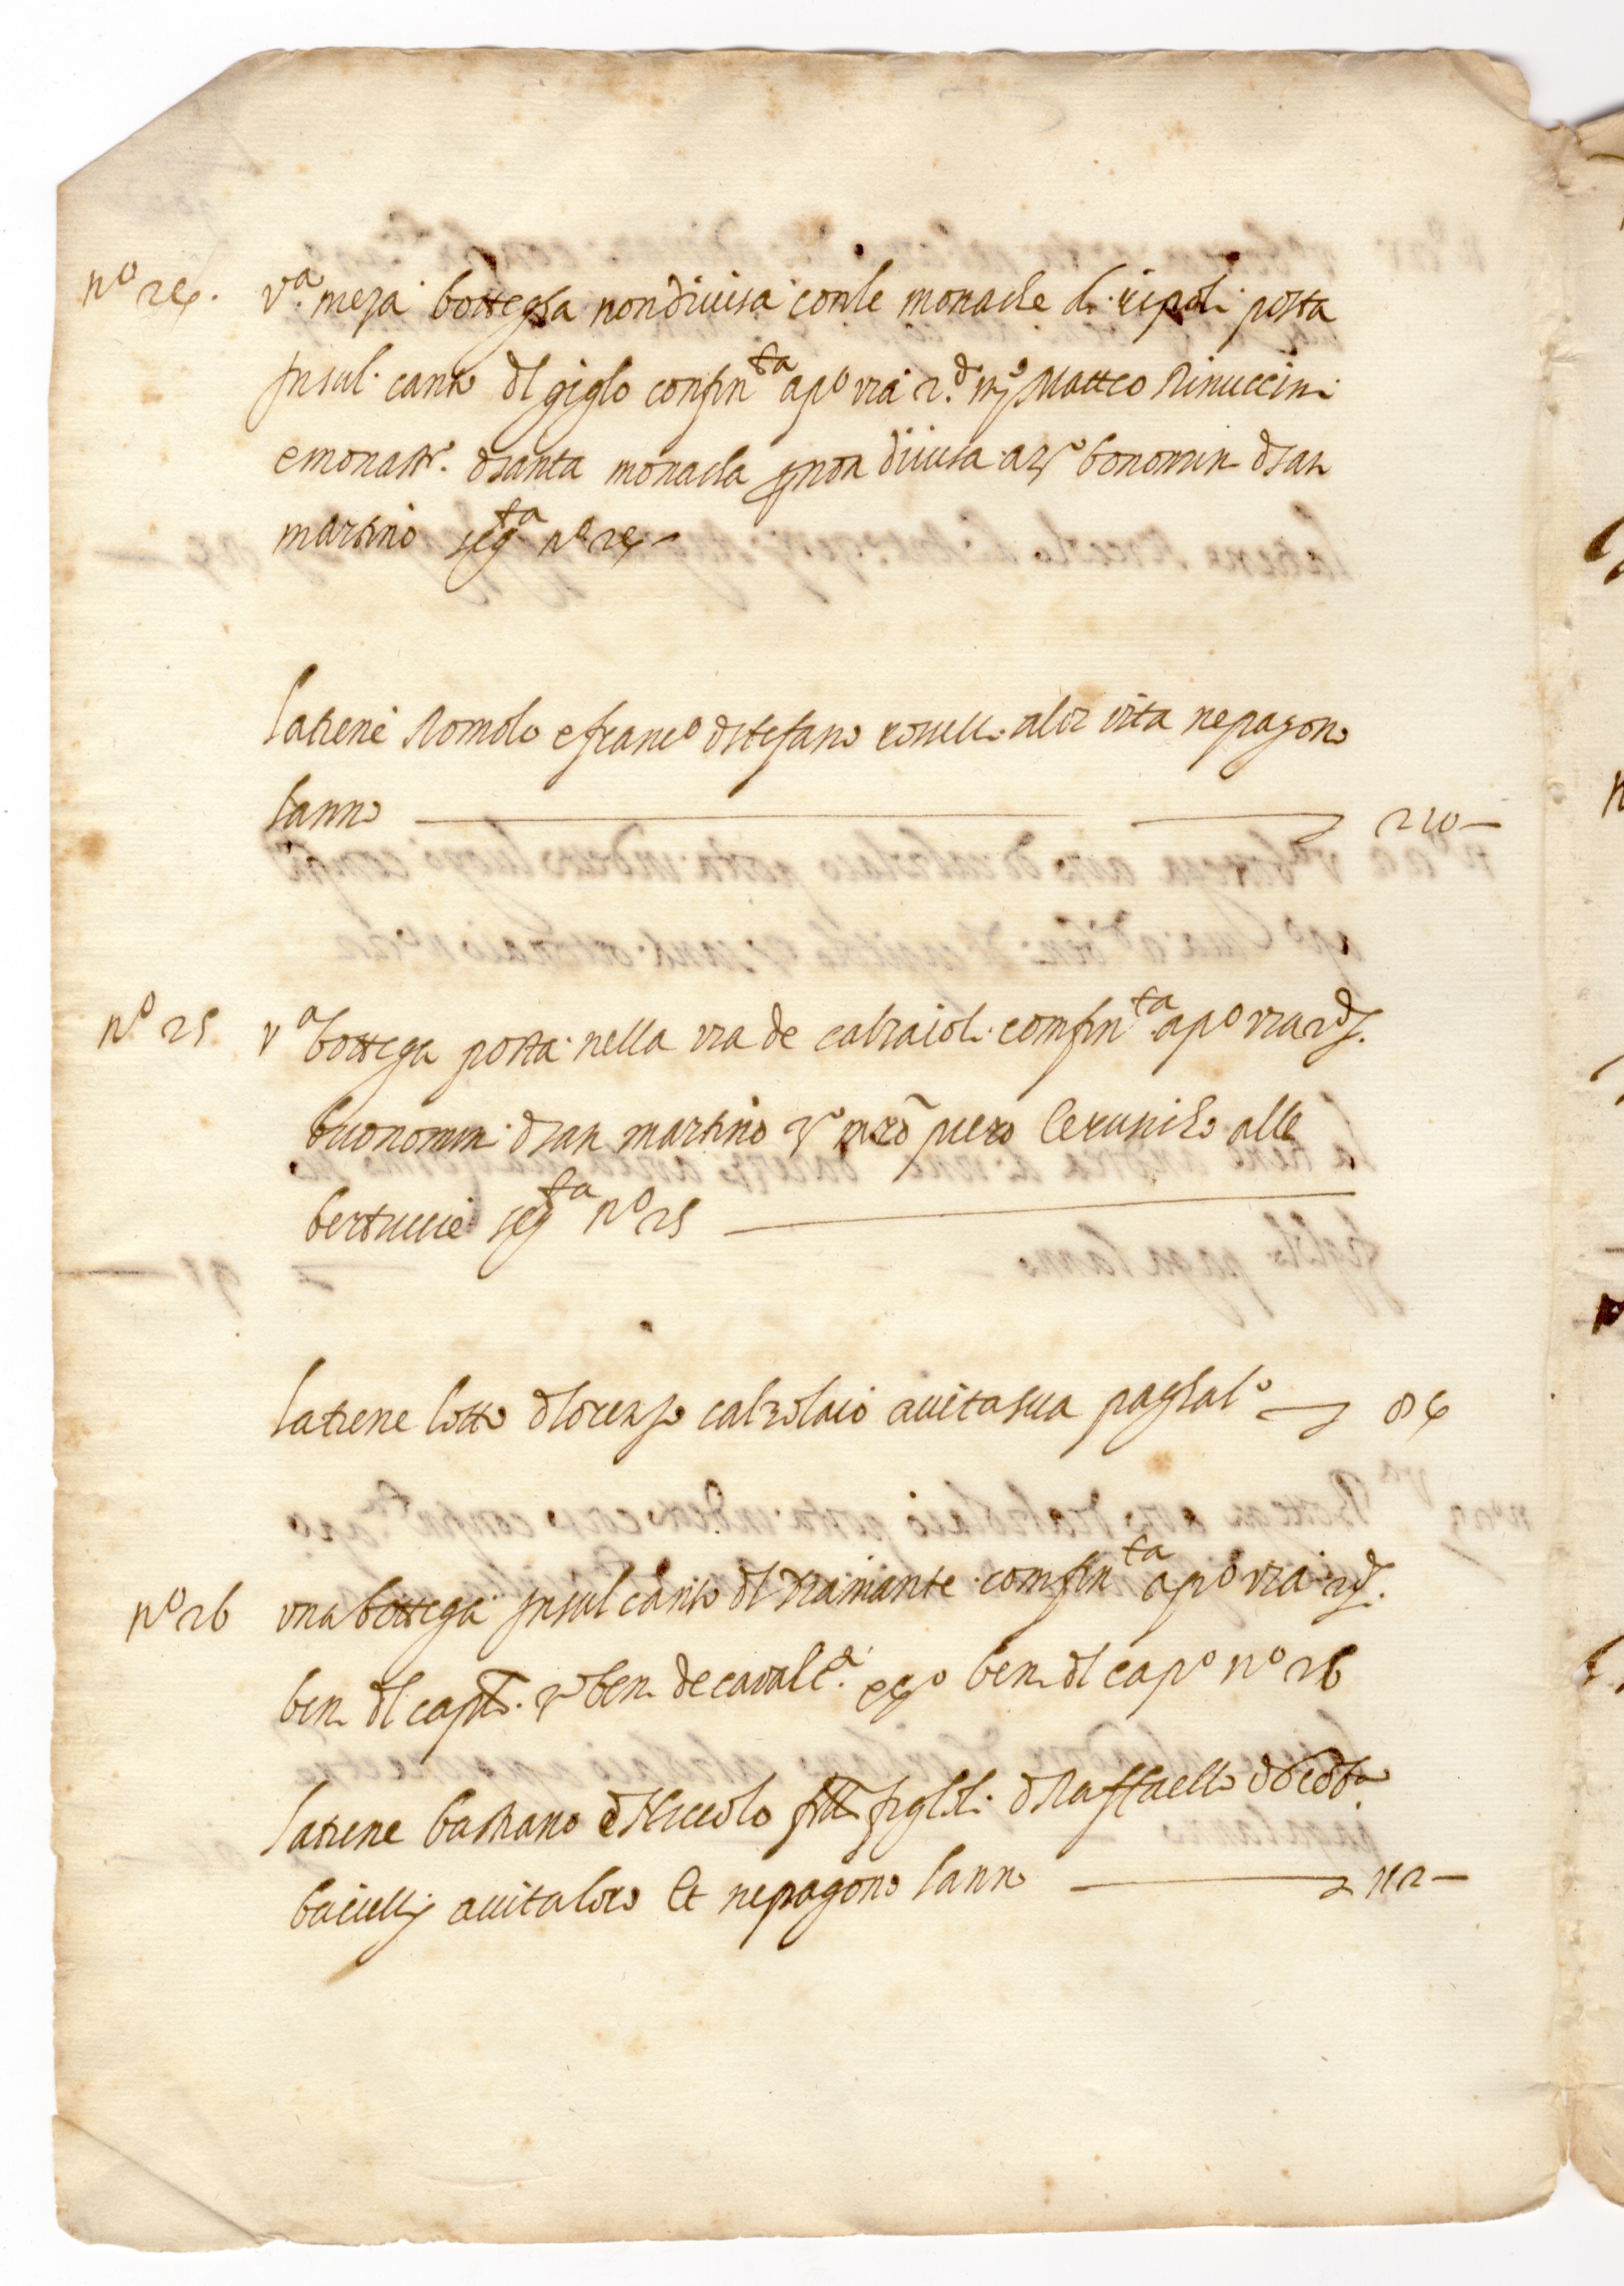 nº 24. vª meza bottegha non divisa con le monache di ripoli posta
insul canto dl giglo confinta apº via 2.d mr Matteo Rinuccini
e monastº. dsanta monacha non divisa a 3º bonomin dsan
martino segta nº 24
la tiene Romolo e francº dstefano vita ne pagono
lanno 210
nº 25 vª bottega posta nella via de calzaioli confinta apº via 2d
buonomini dsan martino 3º mrº piero cerusicho alle
bertuccie segta nº 25
la tiene lotto dlorenzo calzolaio a vita sua pagha lº 84
nº 26 una bottega insul canto dl diamante confinta apº via 2d
ben dl capº. 3º ben de cavalca. e 4º ben dl capº nº 26
la tiene bastiano e Niccolo frlli figlioli dRaffaello
a vita loro et ne pagono lanno 112